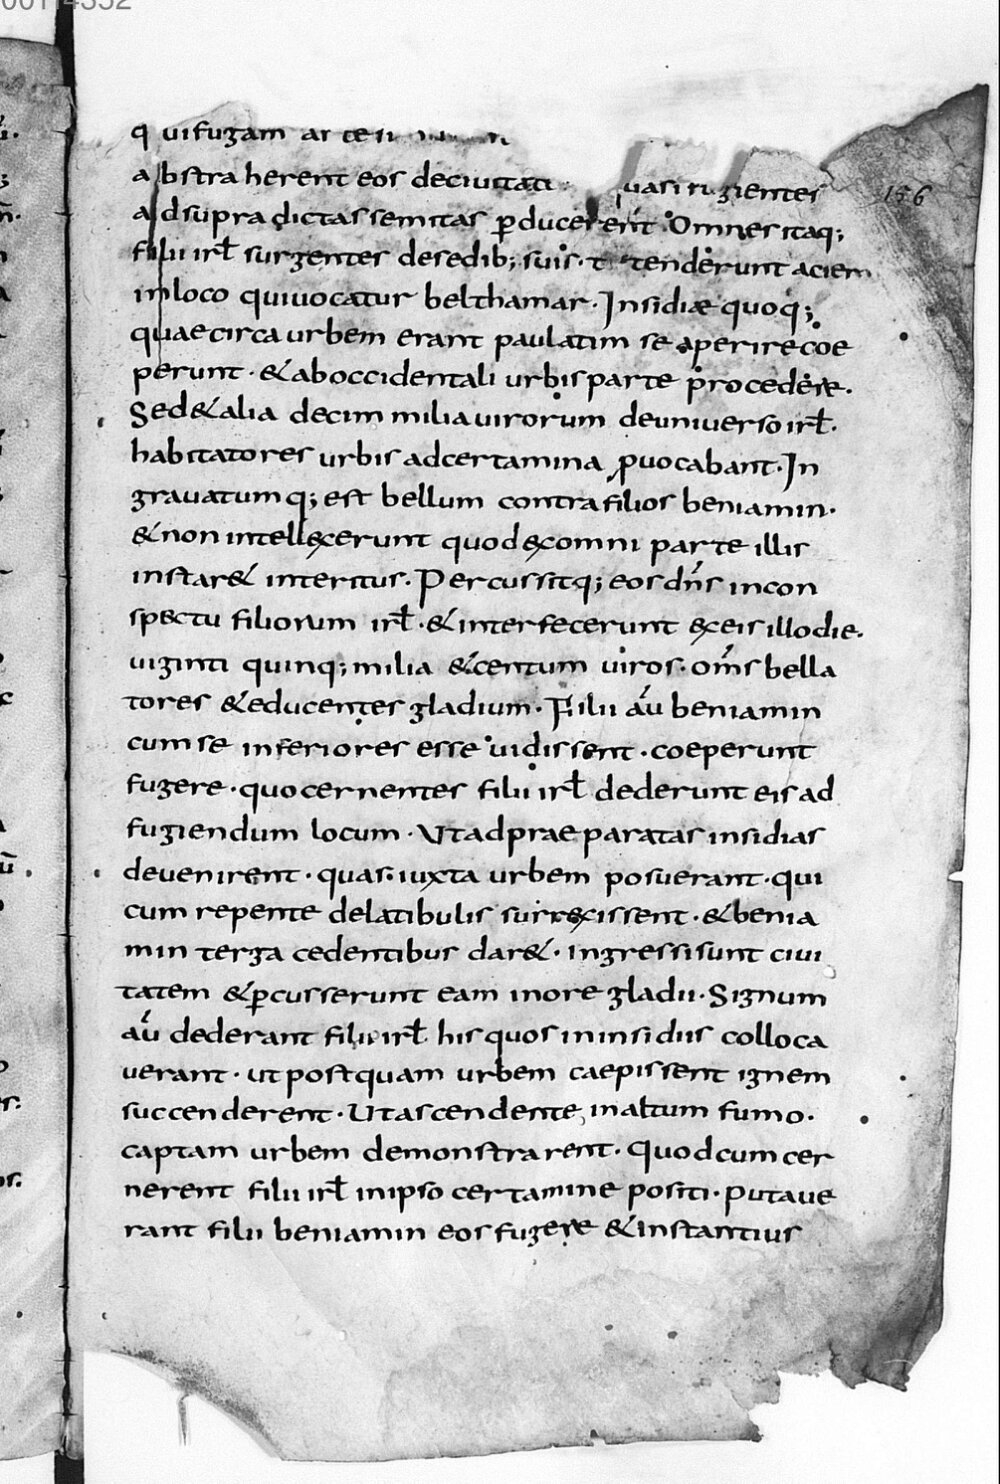 qui fugam arte
abstraherent eos deciuitati quasi fugientes
adsupra dictas semitas ꝑducerent Omnes itaq;
filii irł surgentes desedib; suis · tetenderunt aciem
inloco quiuocatur belthamar · Insidiæ quoq;
quae circa urbem erant paulatim se aperire coe
perunt · & aboccidentali urbis parte procedere.
Sed & alia decim milia uirorum deuniuerso irł.
habitatores urbis adcertamina ꝓuocabant · In
grauatumq; est bellum contra filios beniamin.
& non intellexerunt quod exomni parte illis
instar& interitus. Percussitq; eos dn̄s incon
sp&ctu filiorum irł · & interfecerunt exeis illodie.
uiginti quinq; milia & centum uiros · om̄s bella
tores & educentes gladium. Filii aū beniamin
cum se inferiores esse uidissent · coeperunt
fugere · quo cernentes filii irł dederunt eis ad
fugiendum locum · Ut adprae paratas insidias
deuenirent · quas iuxta urbem posuerant · qui
cum repente delatibulis surrexissent · & benia
min terga cedentibus dar& · ingressi sunt ciui
tatem & ꝑcusserunt eam inore gladii · Signum
aū dederant filii irł his quos ininsidiis colloca
uerant · ut postquam urbem caepissent ignem
succenderent · Ut ascendente inaltum fumo.
captam urbem demonstrarent. Quod cum cer
nerent filii irł inipso certamine positi · putaue
rant filii beniamin eos fugere & instantius
156